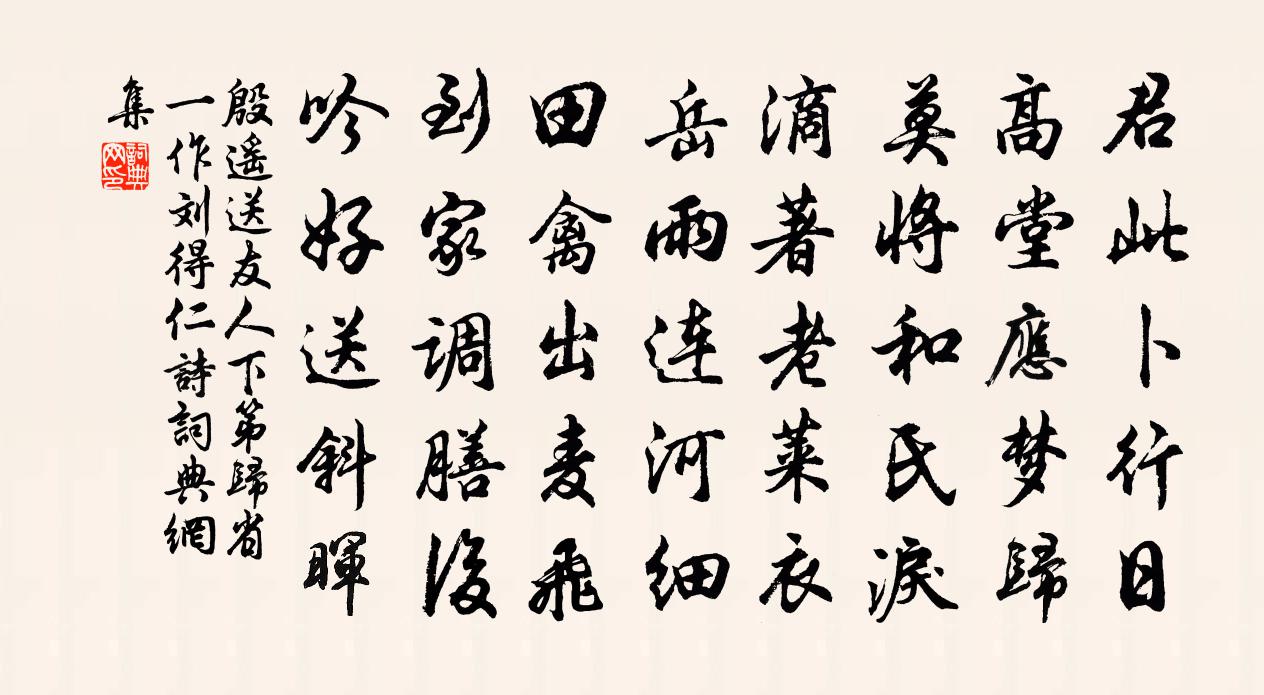 君此卜行日
高堂應梦歸
莫将和氏淚
滴著老莱衣
岳雨连河细
田禽出麦飛
到家调膳後
吟好送斜暉
殷遥送友人下第歸省
一作刘得仁詩詞典網
集
詞典网印